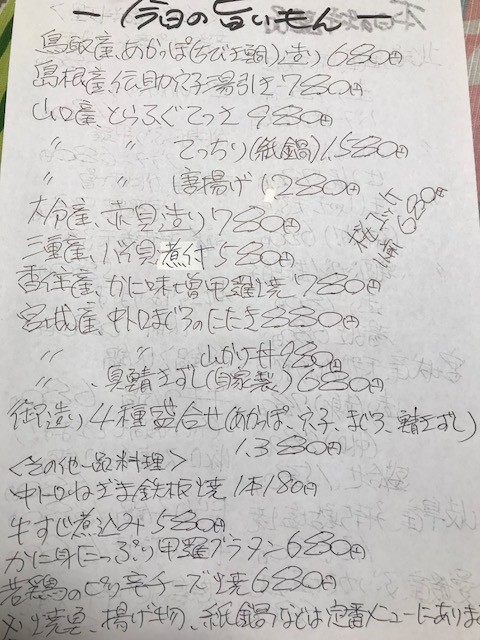 ー今日の旨いもんー
鳥取産、あかっぽ(ちびき鯛)造り 680円
島根産、伝助穴子湯引き 780円
山口産、とらふぐてっさ 980円
〃 〃 てっちり(紙鍋)1,580円
〃 〃 唐揚げ 1,280円
大分産、赤貝造り 780円
三重産、バイ貝煮付 580円
680円
香住産、かに味噌甲羅焼 780円
宮城産、中トロまぐろのたたき 880円
〃 〃 山かけ丼 980円
〃 、真鯖きずし(自家製) 680円
御造り4種盛合せ(あかっぽ、穴子、まぐろ、鯖きずし)
1,380円
<その他一品料理>
中トロねぎま鉄板焼 1本180円
牛すじ煮込み 580円
かに身たっぷり甲羅グラタン 680円
若鶏のピリ辛チーズ焼 680円
※焼鳥、揚げ物、紙鍋などは定番メニューにありま